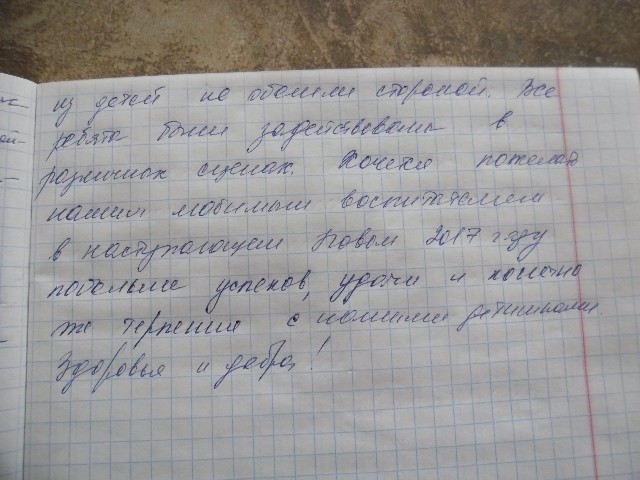 из детей не обошли стороной. Все
ребята были задействованы в
различных сценах. Хочется пожелать
нашим любимым воспитателям
в наступающем Новом 2017 году
побольше успехов, удачи и конечно
же терпения с нашими детишками.
Здоровья и добра!